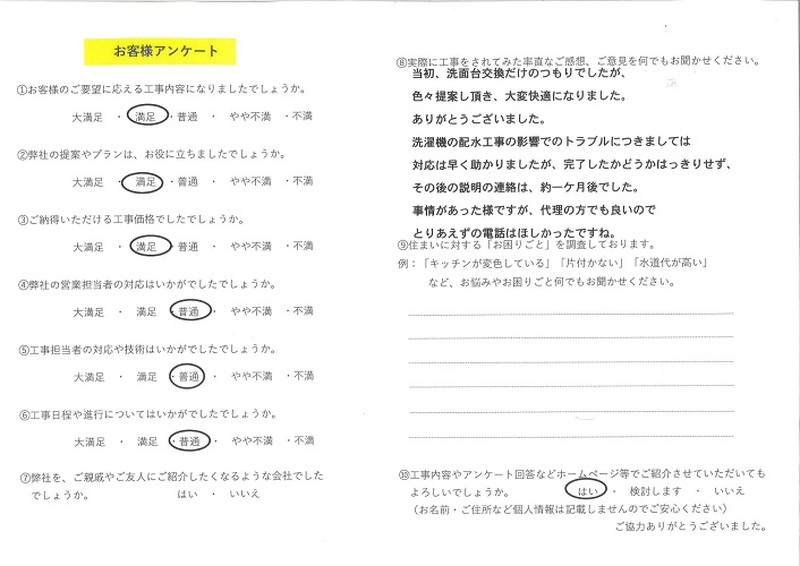 お客様アンケート
①お客様のご要望に応える工事内容になりましたでしょうか。
大満足 ・ 満足 ・普通 ・ やや不満 ・不満
②弊社の提案やプランは、お役に立ちましたでしょうか。
大満足 ・ 満足 ・普通 ・ やや不満 ・不満
③ご納得いただける工事価格でしたでしょうか。
大満足 ・ 満足 ・普通 ・ やや不満 ・不満
④弊社の営業担当者の対応はいかがでしたでしょうか。
大満足 ・ 満足 ・普通 ・ やや不満 ・不満
⑤工事担当者の対応や技術はいかがでしたでしょうか。
大満足 ・ 満足 ・普通 ・ やや不満 ・不満
⑥工事日程や進行についてはいかがでしたでしょうか。
大満足 ・ 満足 ・普通 ・ やや不満 ・不満
⑦弊社を、ご親戚やご友人にご紹介したくなるような会社でした
でしょうか。 はい ・ いいえ
⑧実際に工事をされてみた率直なご感想、ご意見を何でもお聞かせください。
当初、洗面台交換だけのつもりでしたが、
色々提案し頂き、大変快適になりました。
ありがとうございました。
洗濯機の配水工事の影響でのトラブルにつきましては
対応は早く助かりましたが、完了したかどうかはっきりせず、
その後の説明の連絡は、約一ケ月後でした。
事情があった様ですが、代理の方でも良いので
とりあえずの電話はほしかったですね。
⑨住まいに対する「お困りごと」を調査しております。
例：「キッチンが変色している」「片付かない」「水道代が高い」
など、お悩みやお困りごと何でもお聞かせください。
⑩工事内容やアンケート回答などホームページ等でご紹介させていただいても
よろしいでしょうか。 はい ・ 検討します ・ いいえ
（お名前・ご住所など個人情報は記載しませんのでご安心ください）
ご協力ありがとうございました。